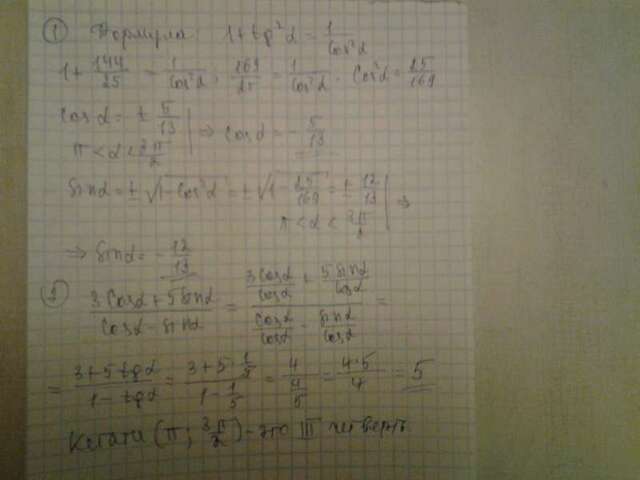 ① Формула: 1+tg²α = 1/cos²α
1+144/25 = 1/cos²α, 169/25 = 1/cos²α, cos²α = 25/169
cosα = ± 5/13 | ⇒ cosα = - 5/13
π < α < 3π/2
sinα = ± √(1-cos²α) = ± √(1-25/169) = ± 12/13 | ⇒
π < α < 3π/2
⇒ sinα = - 12/13
② (3cosα+5sinα)/(cosα-sinα) = (3cosα/cosα + 5sinα/cosα)/(cosα/cosα - sinα/cosα) =
= (3+5tgα)/(1-tgα) = (3+5·1/5)/(1-1/5) = 4/(4/5) = 4·5/4 = 5
Кстати (π; 3π/2) - это III четверть